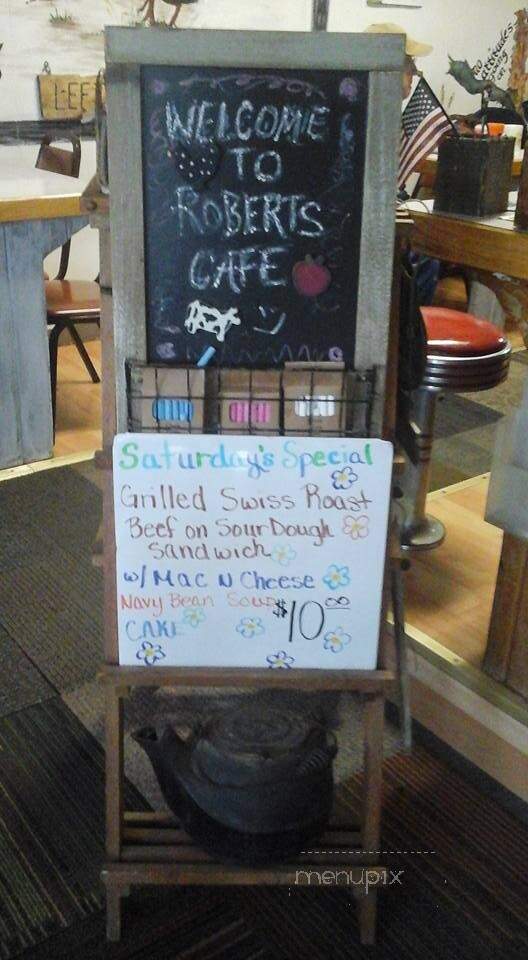 LEE
NO
attitudes
WELCOME
TO
ROBERTS
CAFE
Saturday's Special
Grilled Swiss Roast
Beef on SourDough
Sandwich
w/ Mac N Cheese
Navy Bean Soup
$10.00
CAKE
menupix